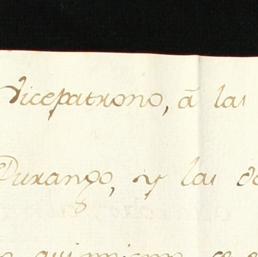 Vicepatrono, á las
Durango, y las de